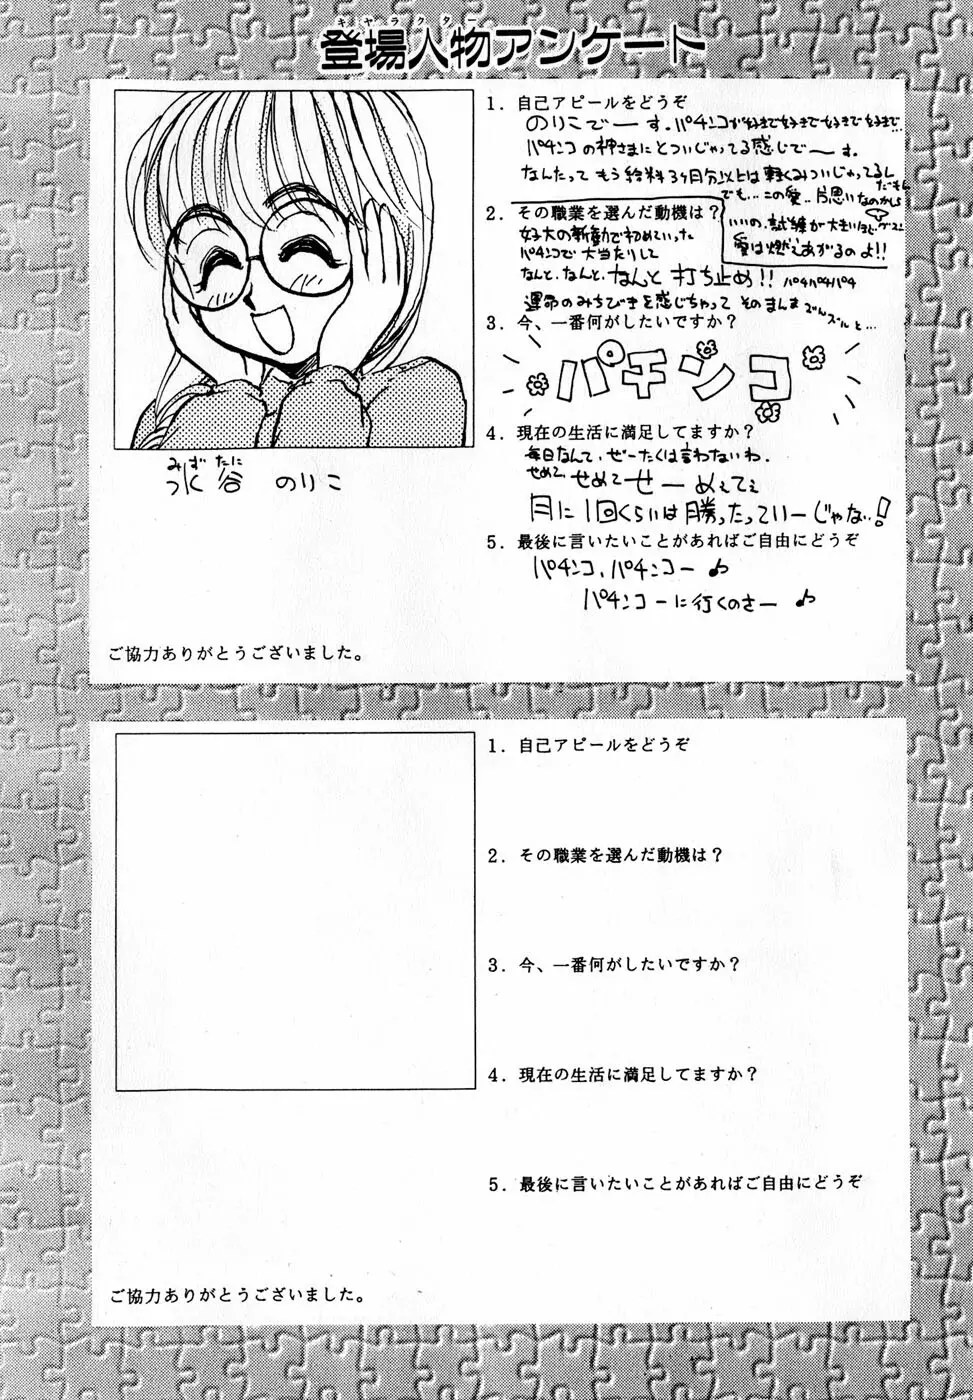 キャラクター
登場人物アンケート
1. 自己アピールをどうぞ
のりこでーす。パチンコが好きで好きで好きで好きで…
パチンコの神さまにとついじゃってる感じでーす。
なんたって もう給料3ヶ月分以上は軽くみついじゃってるん
だもん
でも…この愛、片思いなのかしら
いいの、試練が大きいほど
愛は燃えあがるのよ!!
2. その職業を選んだ動機は？
パチンコで大当たりして
なんと、なんと、なんと 打ち止め!! パチパチパチ
運命のみちびきを感じちゃって そのまんま ずんズルと…
3. 今、一番何がしたいですか？
パチンコ
4. 現在の生活に満足してますか？
毎日なんて、ぜーたくは言わないわ。
せめて、せめて せーめぇてぇ
月に1回くらいは勝ったっていーじゃない!
5. 最後に言いたいことがあればご自由にどうぞ
パチンコ、パチンコー♪
パチンコーに行くのさー♪
みずたに
水谷 のりこ
ご協力ありがとうございました。
1. 自己アピールをどうぞ
2. その職業を選んだ動機は？
3. 今、一番何がしたいですか？
4. 現在の生活に満足してますか？
5. 最後に言いたいことがあればご自由にどうぞ
ご協力ありがとうございました。